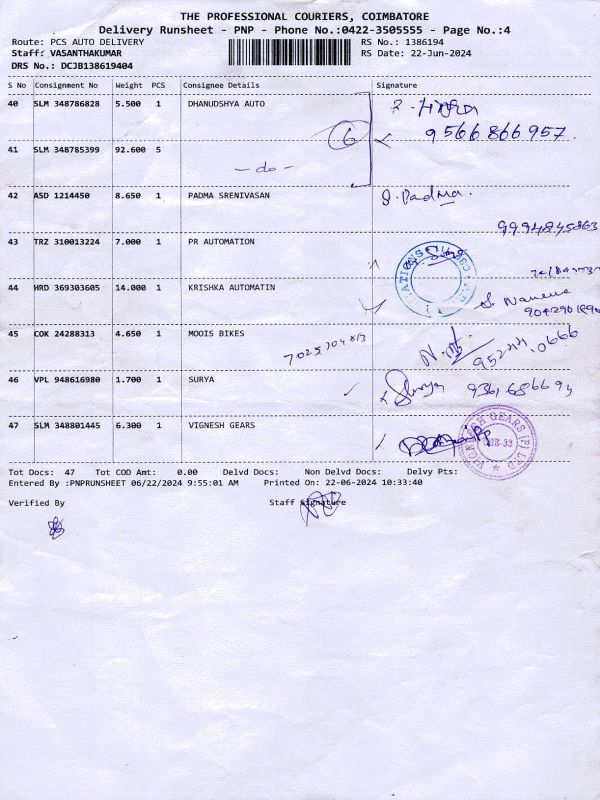 THE PROFESSIONAL COURIERS, COIMBATORE
Delivery Runsheet - PNP - Phone No.:0422-3505555 - Page No.:4
Route: PCS AUTO DELIVERY RS No.: 1386194
Staff: VASANTHAKUMAR RS Date: 22-Jun-2024
DRS No.: DCJB138619404
S No Consignment No Weight PCS Consignee Details Signature
40 SLM 348786828 5.500 1 DHANUDSHYA AUTO
6 9566866957
41 SLM 348785399 92.600 5
- do -
42 ASD 1214450 8.650 1 PADMA SRENIVASAN S. Padma
9994845863
43 TRZ 310013224 7.000 1 PR AUTOMATION
44 HRD 369303605 14.000 1 KRISHKA AUTOMATIN
45 COK 24288313 4.650 1 MOOIS BIKES
46 VPL 948616980 1.700 1 SURYA Surya
47 SLM 348801445 6.300 1 VIGNESH GEARS
VIGNESH GEARS (P) LTD
Tot Docs: 47 Tot COD Amt: 0.00 Delvd Docs: Non Delvd Docs: Delvy Pts:
Entered By :PNPRUNSHEET 06/22/2024 9:55:01 AM Printed On: 22-06-2024 10:33:40
Verified By Staff Signature